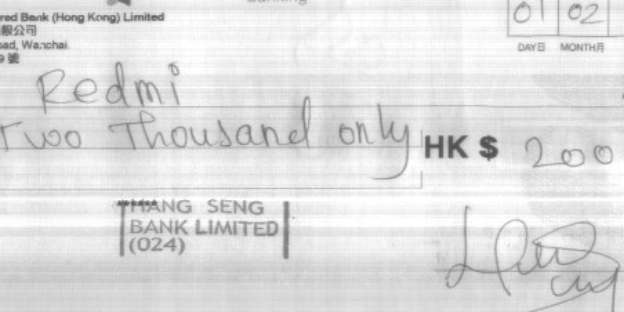 red Bank (Hong Kong) Limited
限公司
oad, Wanchai
9 號
Banking
01 02
DAY日 MONTH月
Redmi
Two Thousand only
HK $ 200
HANG SENG
BANK LIMITED
(024)